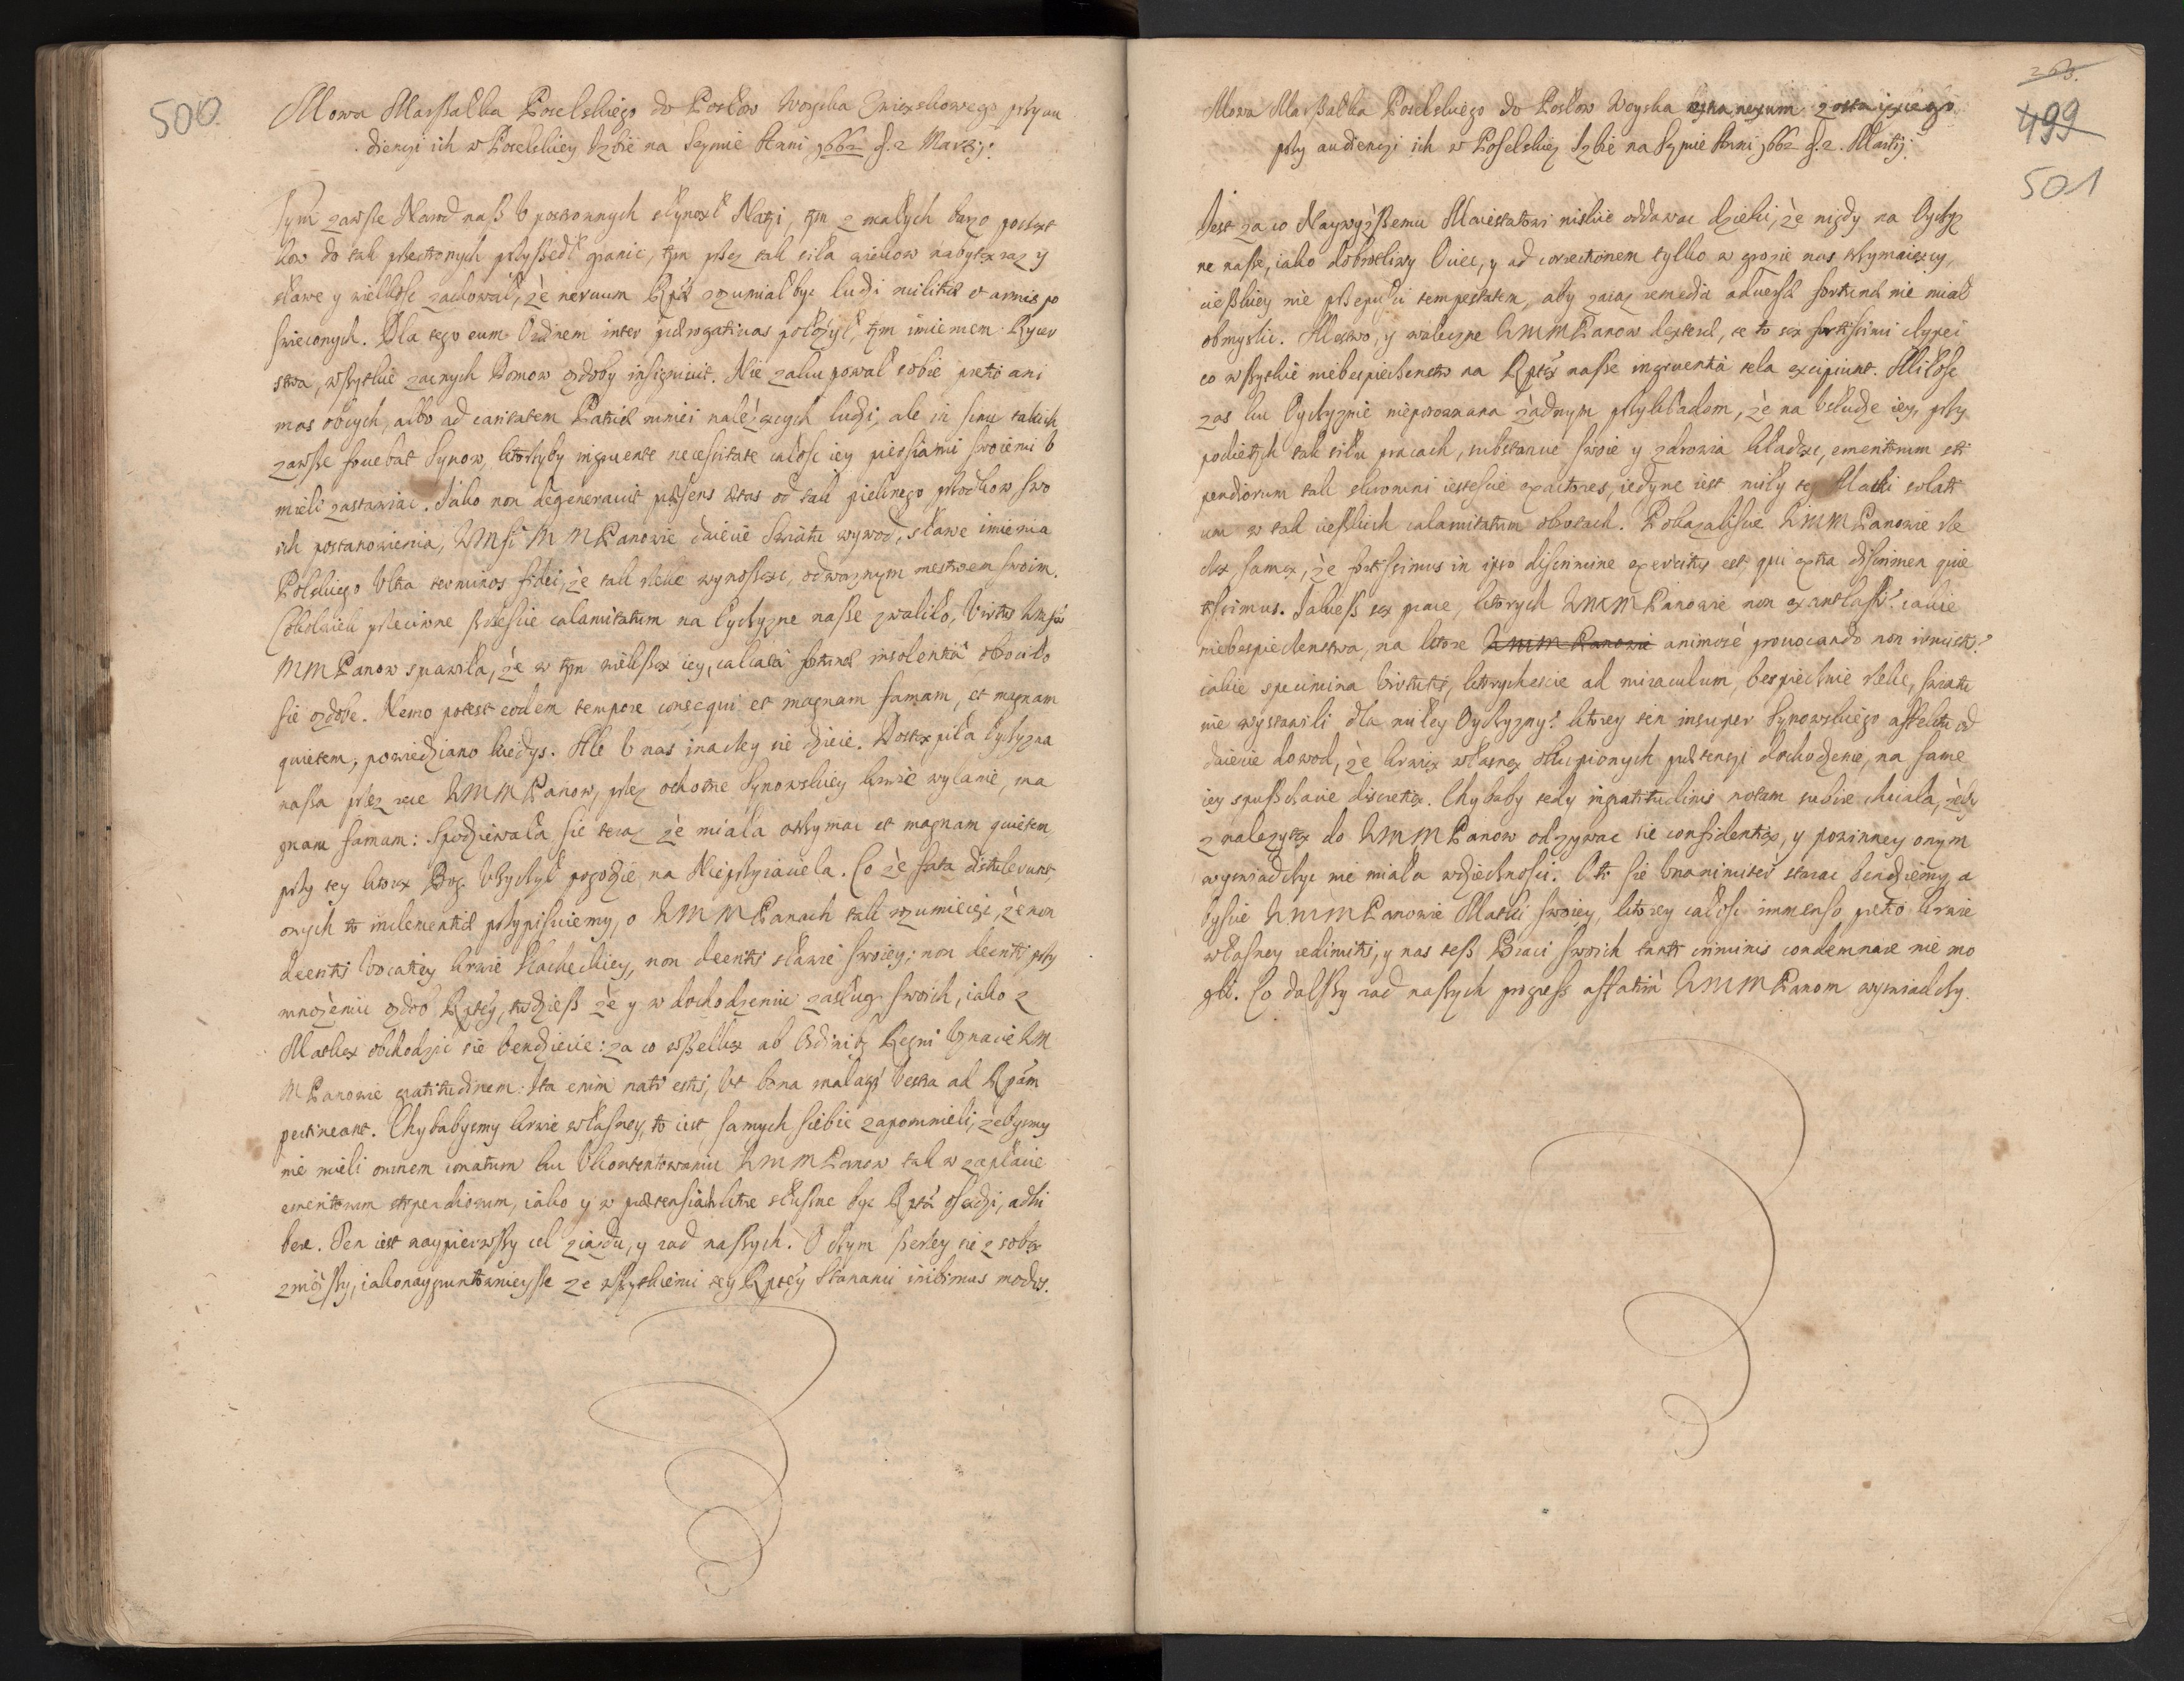 500
Mowa Marßałka Poselskiego do Posłow Woyska Zwiąskowego przy au
dienzi ich w Poselskiey Izbie na Seymie Anni 1662 d. 2 Martij.
Tym zawsze Narod naß u postronnych słynoł Natÿi, tym z małych barzo początk
kow do tak przestronych przyszedł granic, tym przez tak siła wiekow nabytą raz y
sławe y wielkość zachował, że nervum Rptæ rozumiał być ludzi militiæ et armis po
swieconych. Dla tego eum Ordinem inter prærogativas położył, tym imieniem Rycer
stwa, wszytkie zacnych Domow ozdoby insignivit. Nie zakupował sobie pretio ani
mos obcych, albo ad caritatem Patriæ mniei należących ludzi, ale in sinu takich
zawsze fovebat Synow, ktorzyby ingruente necessitate całość iey piersiami swoiemi u
mieli zastawiac. Jako non degeneravit præsens ætas od tak pieknego przodkow swo
ich postanowienia, WMsć M M Panowie daiecie Swiatu wywod, sławe imienia
Polskiego Ultra terminos fidei, że tak rzeke wynosząc, odwaznym mestwem swoim.
Cokolwiek przeciwne szczescie calamitatum na Oyczyzne nasze zwaliło, Virtus WMsciow
MM Panow sprawiła, że w tym wiekszą iey, calcata fortunæ insolentia obrociło
sie ozdobe. Nemo potest eodem tempore consequi et magnam famam, et magnam
quietem, powiedziano kiedys. Ale u nas inaczey sie dzieie. Dostąpiła Oyczyzna
nasza przez rece WMMPanow, przez ochotne Synowskiey krwie wylanie, ma
gnam famam: Spodziewała sie teraz że miała otrzymac et magnam quietem
przy tey ktorą Bog użyczył pogodzie na Nieprzyiaciela. Co że fata distulerunt,
onych to inclementiæ przypisuiemy, o WMMPanach tak rozumieiąc, że non
deeritis krwie Szlacheckiey, non deeritis sławie swoiey; non deeritis przy
mnożeniu ozdob Rptey, tudziesz że y w dochodzeniu zasług swoich, iako z
Matką obchodzic sie bendziecie: za co wszelką ab Ordinib9 Regni uznacie WM
MPanowie gratitudinem. Ita enim nati estis, ut bona malaq3 vestra ad Rpam
pertineant. Chybabysmy krwie własney, to iest, samych siebie zapomnieli, żebysmy
nie mieli omnem conatum ku ukontentowaniu WMMPanow tak w zapłacie
emeritorum stipendiorum, iako y w prætensiach ktore słuszne być Rpta osądzi, adhi
bere. Ten iest naypierwszy cel ziazdu, y rad naszych. O czym szerzey sie z sobą
zniosszy, iako naygruntowniejsze ze wszytkiemi tey Rptey Stanami inibimus modos.
263.
499
501
Mowa Marßałka Poselskiego do Posłow Woyska extra nexum zostaiącego
przy audienzi ich w Poselskiey Izbie na Seymie Anni 1662 d. 2. Martij.
Jest za co Naywyższemu Maiestatowi niskie oddawac dzieki, że nigdy na Oyczyz
ne nasze, iako dobrotliwy Ociec, y ad correctionem tylko w grozie nas trzymaiący,
cieszkiey nie przepuści tempestatem, aby zaraz remedia adversæ fortunæ nie miał
obmyslic. Mestwo, y waleczne WMMPanow dexteræ, te to są fortissimi clypei
co wszytkie niebespieczenstw na Rptą nasze ingruentia tela excipiunt. Miłość
zas ku Oyczyznie nieporownana żadnym przykładom, że na usłudze iey, przy
podietych tak siłu pracach, substancie swoie y zdrowia kładąc, emeritorum sti
pendiorum tak skromni iestescie exactores, iedyne iest miły tey Matki solati
um w tak cieszkich calamitatum obrotach. Pokazaliscie WMMPanowie rze
czą samą, że fortissimus in ipso discrimine exercitus est, qui extra discrimen quie
tissimus. Jakiesz są prace, ktorych WMMPanowie non exantlastis? iakie
niebespieczenstwa, na ktore WMMPanowie animose provocando non irruistis?
iakie specimina virtutis, ktorychescie ad miraculum, bespiecznie rzeke, swiatu
nie wystawili dla miłey Oyczyzny? ktorey ten insuper Synowskiego affektu od
daiecie dowod, że krwią własną okupionych prætensyi dochodzenie, na same
iey spuszczacie discretią. Chybaby tedy ingratitudinis notam subire chciała, zeby
z należytą do WMMPanow odzywac sie confidentią, y powinney onym
wyswiadczyc nie miała wdziecznosci. O to sie unanimiter starac bendziemy, a
byscie WMMPanowie Matki swoiey, ktorey całosc immenso pretio krwie
własney redimitis, y nas tesz Braci swoich tanti criminis condemnare nie mo
gli. Co dalszy rad naszych progress affatim WMMPanom wyswiadczy.